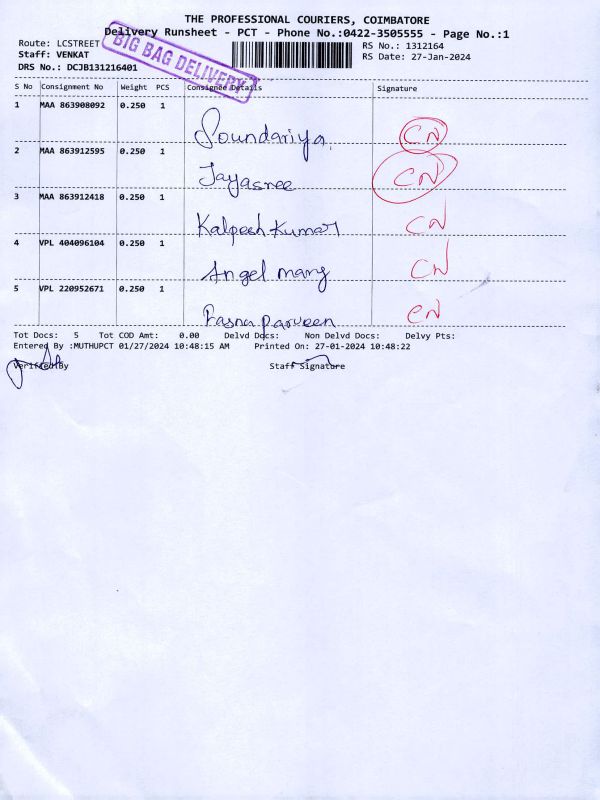 THE PROFESSIONAL COURIERS, COIMBATORE
Delivery Runsheet - PCT - Phone No.:0422-3505555 - Page No.:1
Route: LCSTREET
Staff: VENKAT
DRS No.: DCJB131216401
BIG BAG DELIVERY
RS No.: 1312164
RS Date: 27-Jan-2024
S No Consignment No Weight PCS Consignee Details Signature
1 MAA 863908092 0.250 1
Soundariya. CN
2 MAA 863912595 0.250 1
Jayasree CN
3 MAA 863912418 0.250 1
Kalpesh Kumar CN
4 VPL 404096104 0.250 1
Angel mary CN
5 VPL 220952671 0.250 1
parveen CN
Tot Docs: 5 Tot COD Amt: 0.00 Delvd Docs: Non Delvd Docs: Delvy Pts:
Entered By :MUTHUPCT 01/27/2024 10:48:15 AM Printed On: 27-01-2024 10:48:22
Verified By Staff Signature